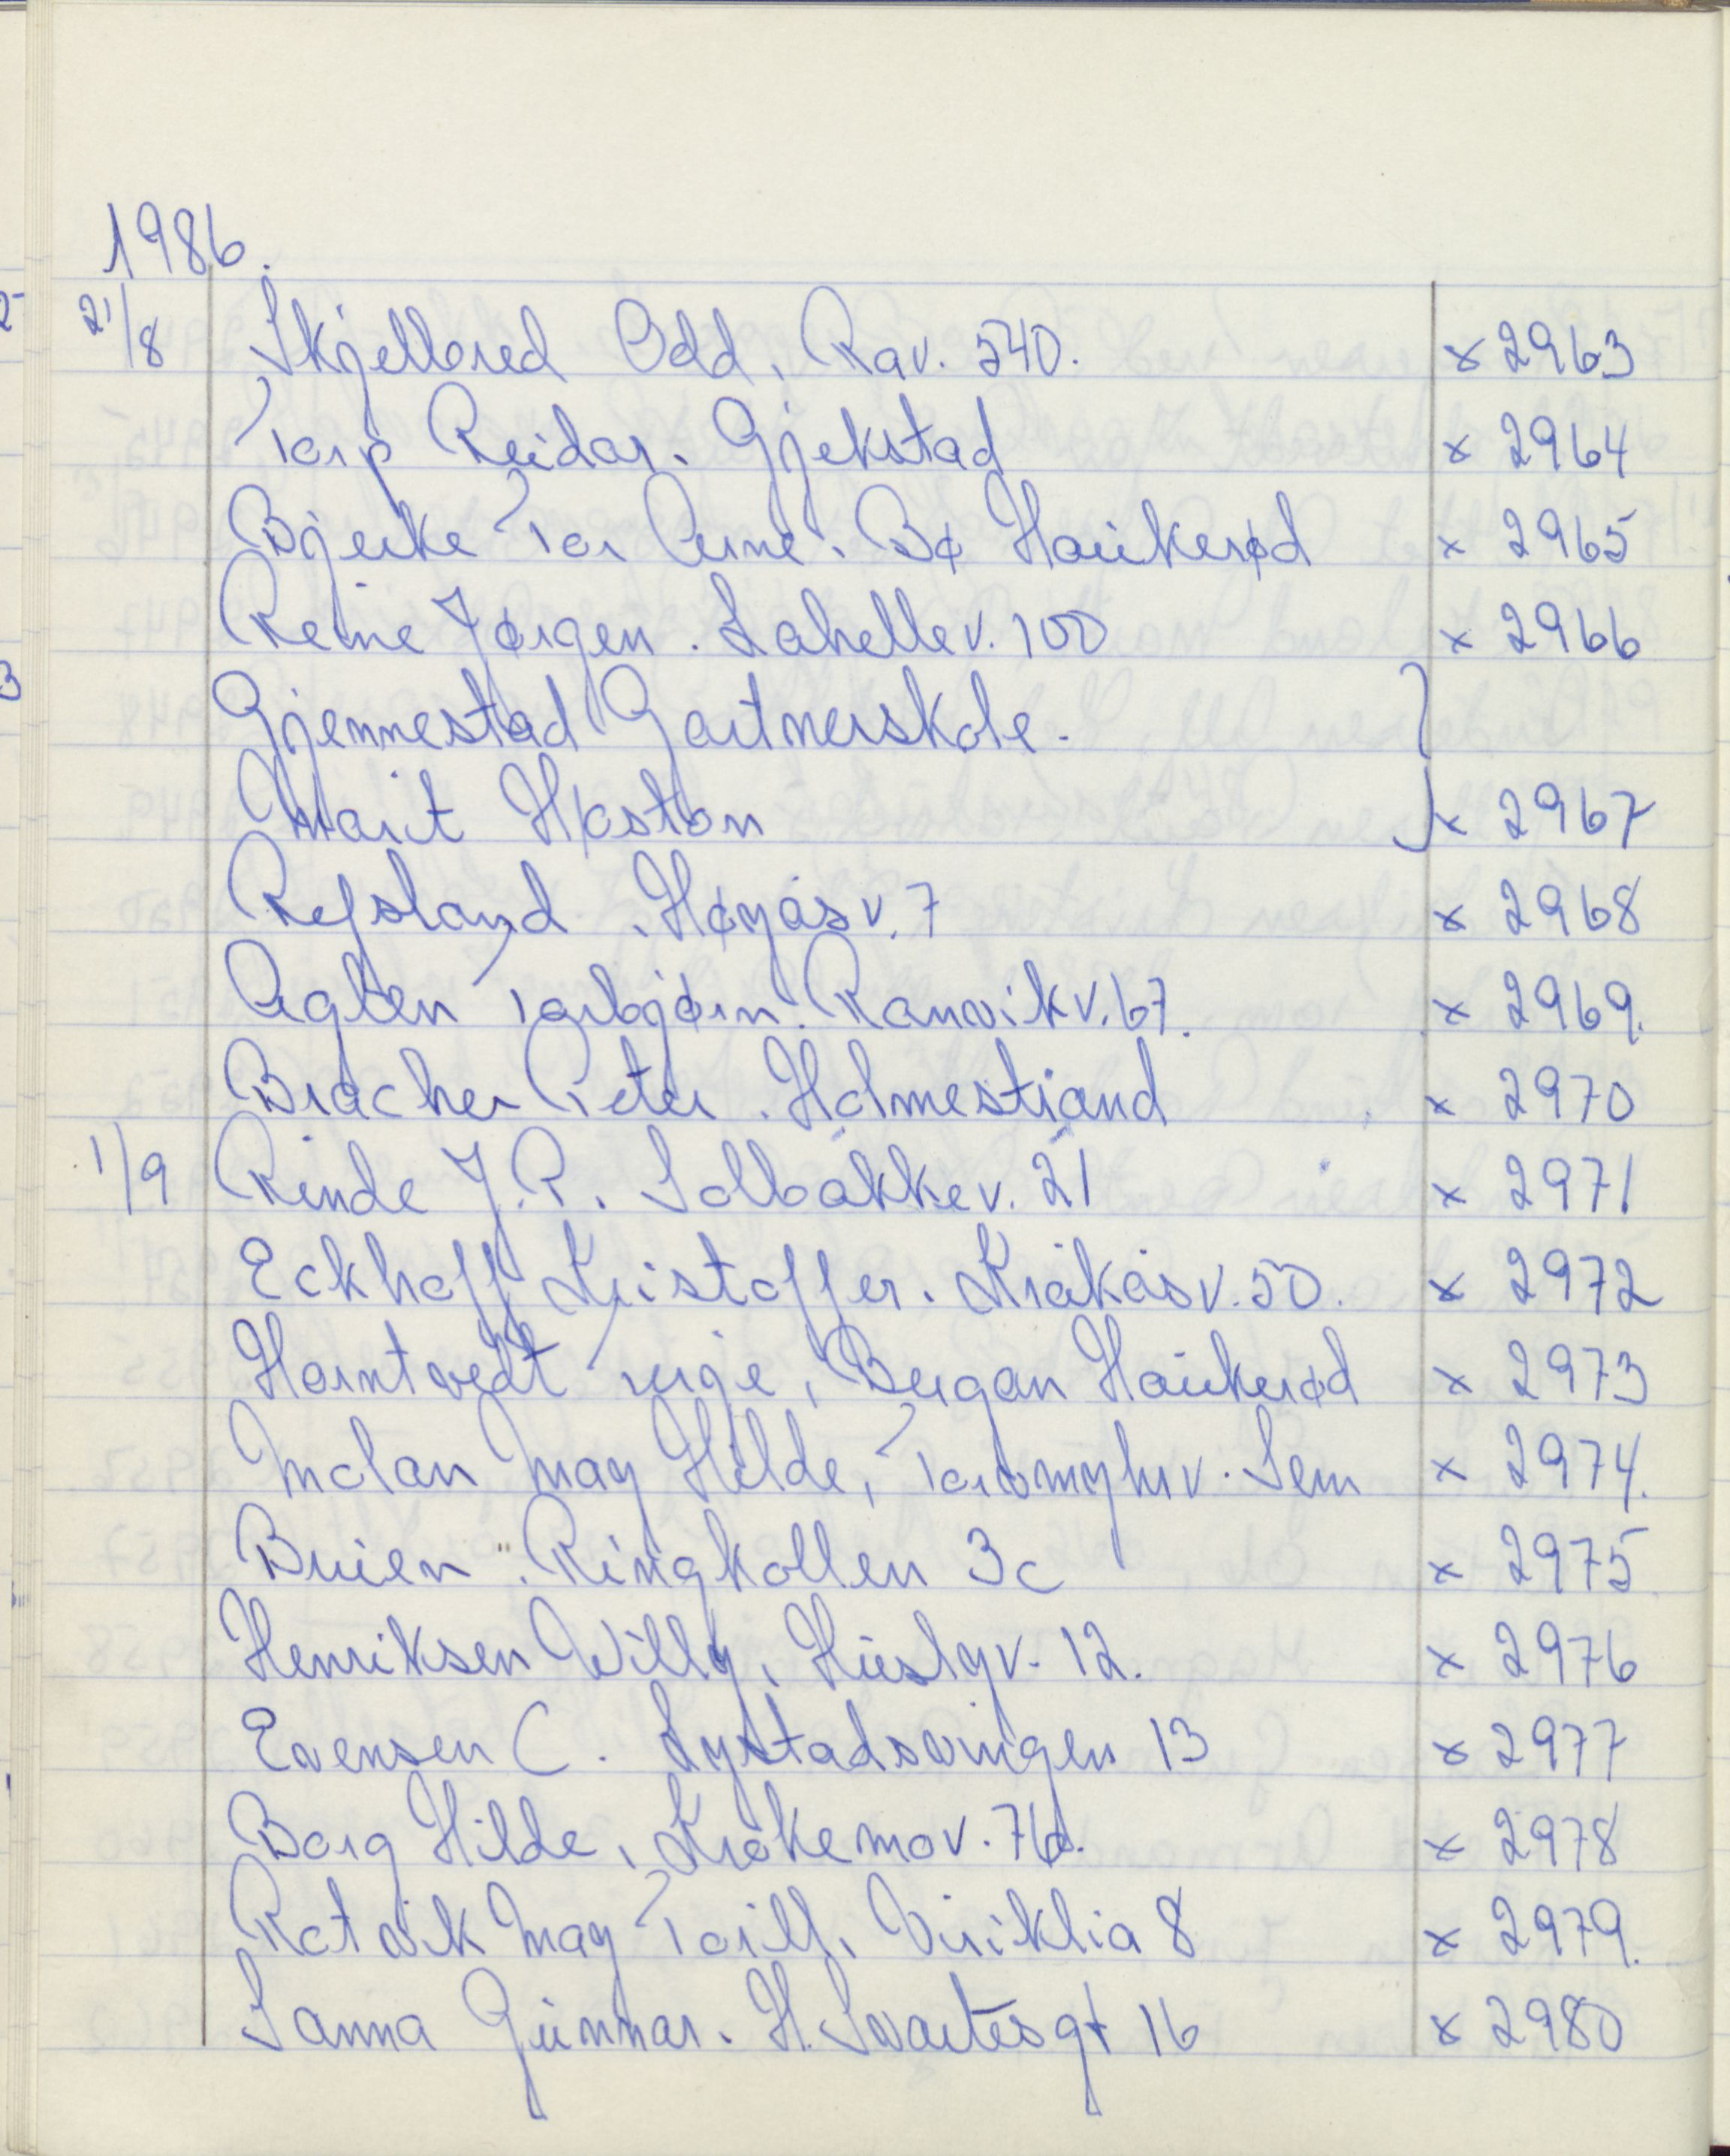 1986.
21/8 Skjelbred Odd, Rav. 540. x 2963
Torp Reidar. Gjekstad x 2964
Bjerke Tor Arne. Bø Haukerød x 2965
Reine Jørgen. Lahellev. 100 x 2966
Gjennestad Gartnerskole. }
Marit Haston x 2967
Refsland. Høyåsv. 7 x 2968
Agben Torbjørn. Ranvikv. 67. x 2969.
Bracher Peter. Holmestrand x 2970
1/9 Rinde J.P. Solbakkev. 21 x 2971
Eckhoff Kristoffer. Kråkåsv. 50. x 2972
Horntvedt Terje, Bergan Haukerød x 2973
Molan May Hilde, Toromyhrv. Sem x 2974.
Bruien. Ringkollen 3c x 2975
Henriksen Willy, Huslyv. 12. x 2976
Evensen C. Lystadsvingen 13 x 2977
Borg Hilde, Kråkemov. 76d. x 2978
Rotvik May Torill, Viriklia 8 x 2979.
Sanna Gunnar. H. Svartesgt 16 x 2980